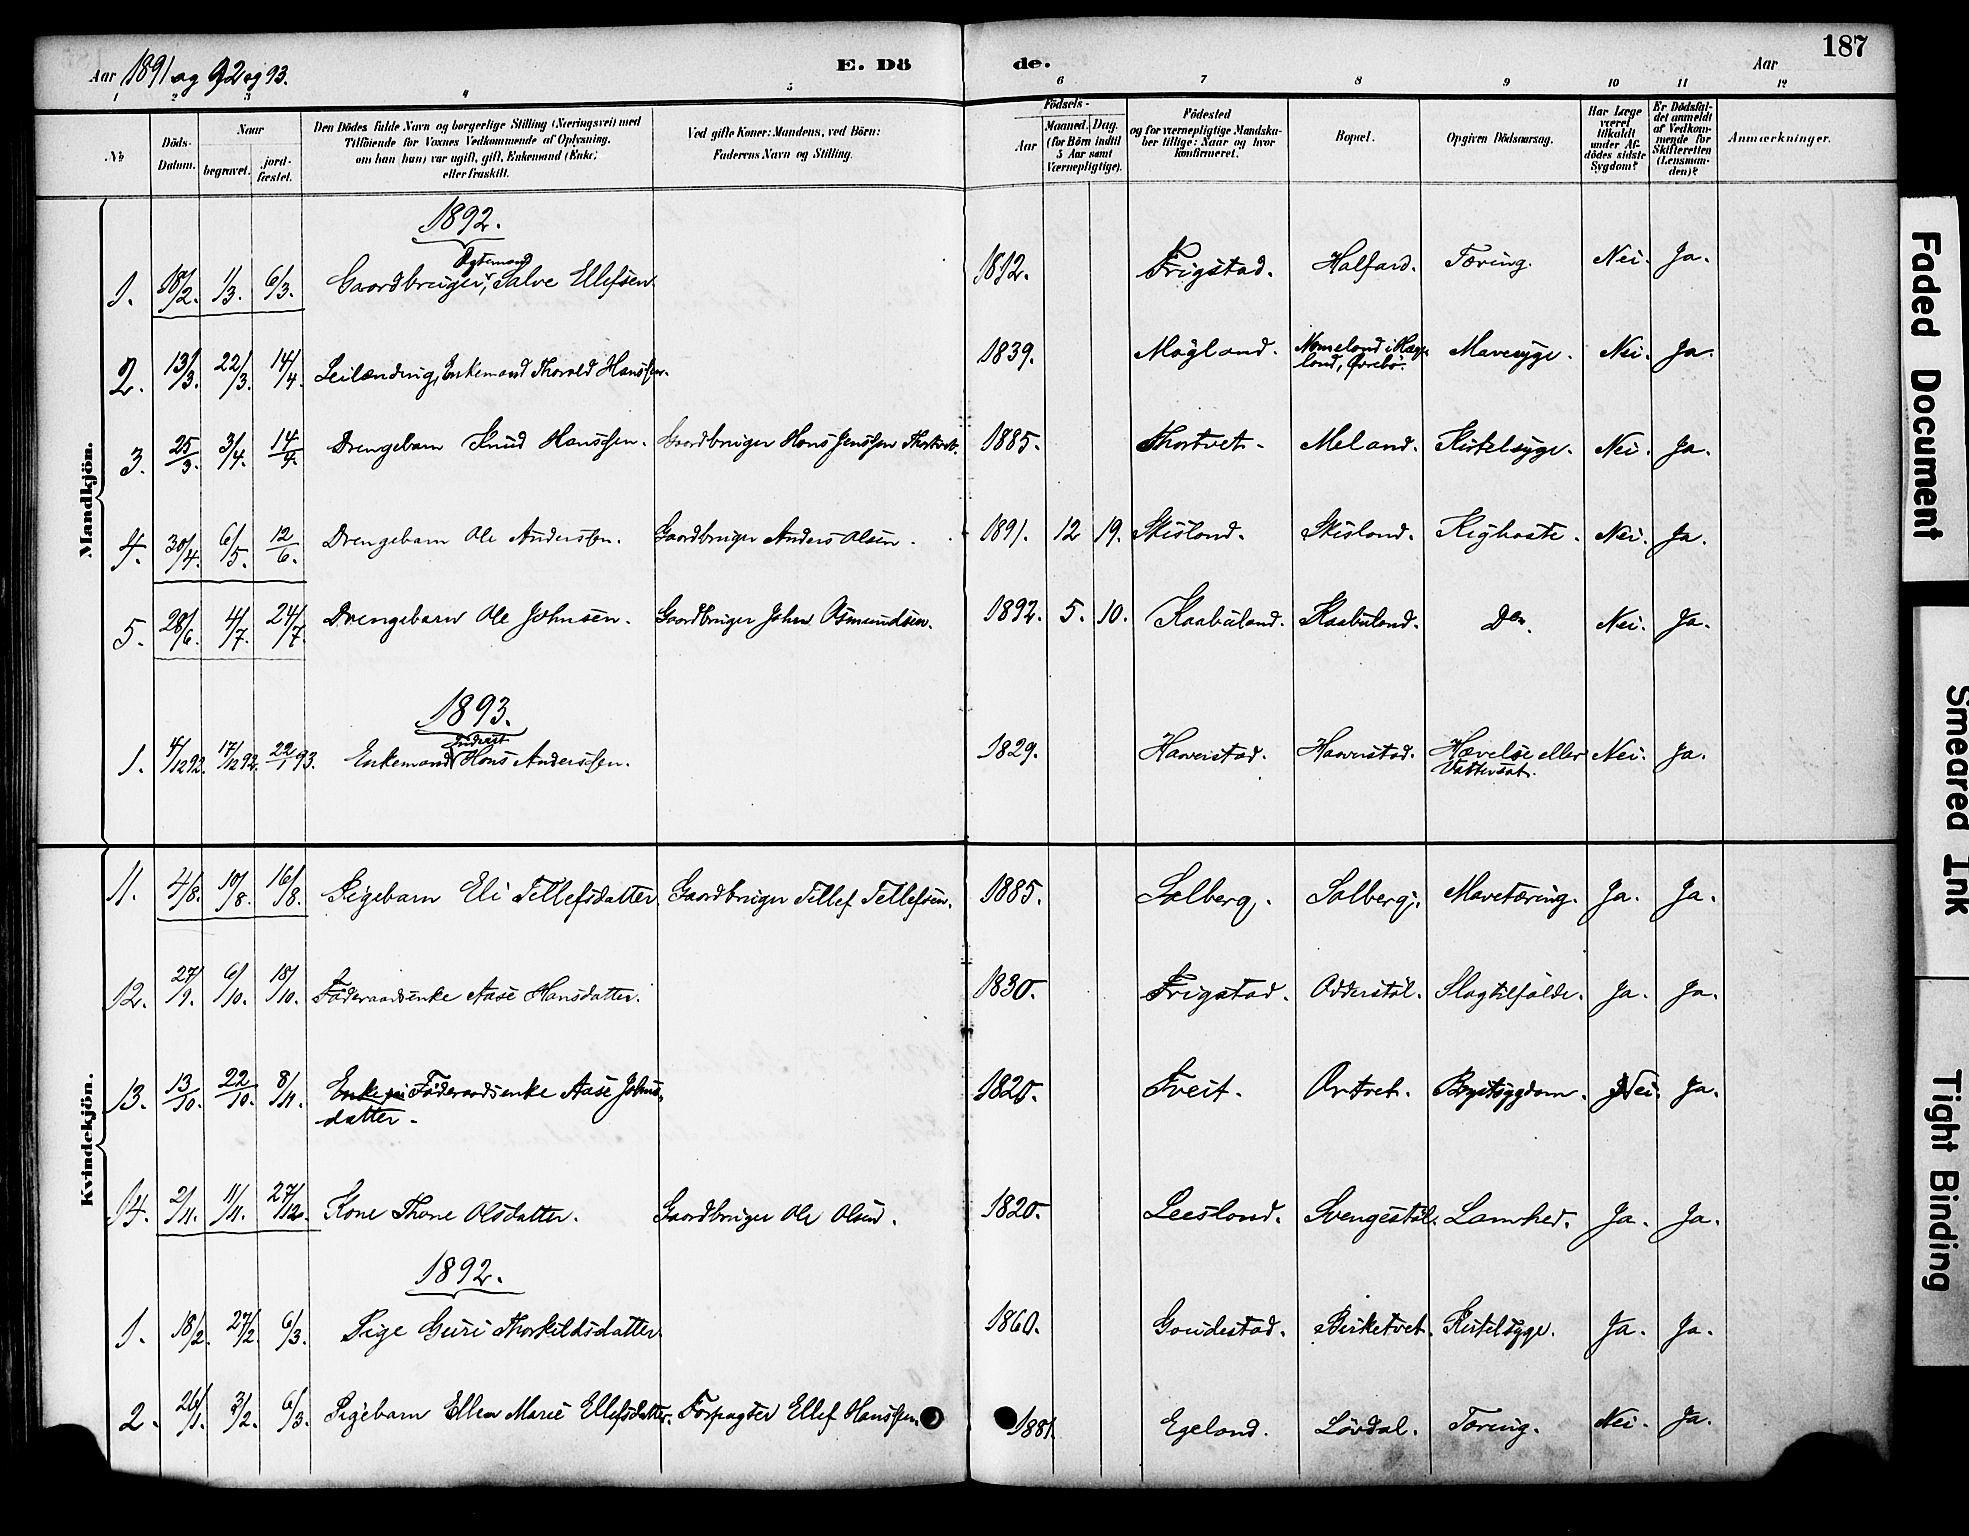 Aar 1891 og 92 og 93.
E. Dö
de.
Aar
187
1 2 3 4 5 6 7 8 9 10 11 12
No
Döds-Datum.
Naar
begravet.
jordfæstet.
Den Dödes fulde Navn og borgerlige Stilling (Næringsvei) med
Tilföiende for Voxnes Vedkommende af Oplysning,
om han (hun) var ugift, gift, Enkemand (Enke)
eller fraskilt.
Ved gifte Koner: Mandens, ved Börn:
Faderens Navn og Stilling.
Födsels-
Aar
Maaned. Dag.
(for Börn indtil
5 Aar samt
Værnepligtige).
Födested
og for værnepligtige Mandskaber
tillige: Naar og hvor
konfirmeret.
Bopæl.
Opgiven Dödsaarsag.
Har Læge
været
tilkaldt
under Afdödes
sidste
Sygdom?
Er Dödsfaldet
anmeldt
af Vedkommende
for
Skifteretten
(Lensmanden)?
Anmærkninger.
Mandkjön.
1892.
Ægtemand
1. 18/2. 1/3. 6/3. Gaardbruger, Salve Ellefsen 1812. Frigstad. Halfard. Tæring. Nei. Ja.
2. 13/3. 22/3. 14/4. Leilænding, Enkemand Thorald Hanssen. 1839. Mögland. Nomeland i Hægeland, Övrebö. Mavesyge. Nei. Ja.
3. 25/3. 3/4. 14/4. Drengebarn Knud Hanssen. Gaardbruger Hans Jenssen Thortvet. 1885. Thortvet. Meland. Kirtelsyge. Nei. Ja.
4. 30/4. 6/5. 12/6. Drengebarn Ole Anderssen. Gaardbruger Anders Olsen. 1891. 12 19. Skisland. Skisland. Kighoste. Nei. Ja.
5. 28/6. 4/7. 24/7. Drengebarn Ole Johnsen. Gaardbruger John Osmundsen. 1892. 5. 10. Kaabuland. Kaabuland. Do. Nei. Ja.
1893.
Inderst
1. 4/12 92. 17/12 92. 22/1 93. Enkemand Hans Anderssen. 1829. Haverstad. Haverstad. Hævelse eller Vattersot. Nei. Ja.
Kvindekjön.
11. 4/8. 10/8. 16/8. Pigebarn Eli Tellefsdatter. Gaardbruger Tellef Tellefsen. 1885. Solberg. Solberg. Mavetæring. Ja. Ja.
12. 27/9. 6/10. 18/10. Föderaadsenke Aase Hansdatter. 1830. Frigstad. Odderstöl. Slagtilfælde. Ja. Ja.
13. 13/10. 22/10. 8/11. Enke Föderaadsenke Aase Johnsdatter. 1820. Tveit. Ortvet. Brystsygdom. Nei. Ja.
14. 2/11. 11/11. 27/12. Kone Thone Olsdatter. Gaardbruger Ole Olsen. 1820. Leesland. Svengestöl. Lamhed. Ja. Ja.
1892.
1. 18/2. 27/2. 6/3. Pige Guri Thorkildsdatter 1860. Goudestad. Birketvet. Kirtelsyge. Ja. Ja.
2. 26/1. 3/2. 6/3. Pigebarn Ellen Marie Ellefsdatter. Forpagter Ellef Hanssen. 1881. Egeland. Lövdal. Tæring. Nei. Ja.
Faded Document
Smeared Ink
Tight Binding